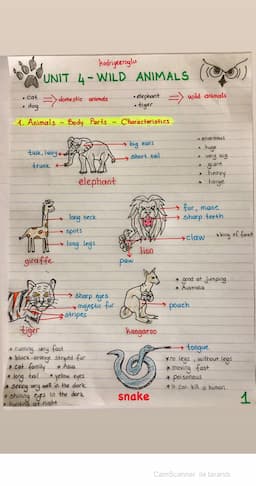 hadriyeeroglu
UNIT 4 - WILD ANIMALS
• cat
• dog
domestic animals
• elephant
• tiger
wild animals
1. Animals - Body Parts - Characteristics
tusk, ivory
trunk
big ears
short tail
• enormous
• huge
• very big
• giant
• heavy
• large
elephant
long neck
spots
long legs
giraffe
fur, mane
sharp teeth
claw
• king of forest
lion
paw
sharp eyes
majestic fur
stripes
tiger
• good at jumping
• Australia
pouch
kangaroo
• running very fast
• black-orange striped fur
• cat family • Asia
• long tail • yellow eyes
• seeing very well in the dark
• shining eyes in the dark
• hunting at night
tongue
• no legs, without legs
• moving fast
• poisonous
• it can kill a human
snake
1
CamScanner ile tarandı